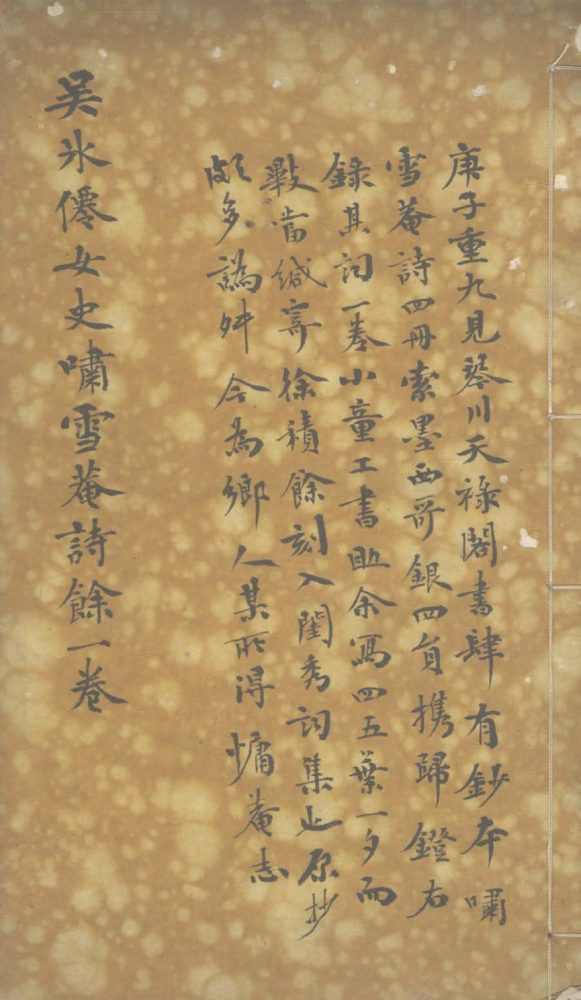 庚子重九見琴川天祿閣書肆有鈔本嘯
雪菴詩四冊索墨西哥銀四員携歸鐙右
錄其詞一卷小童工書助余寫四五葉一夕而
當緘寄徐積餘刻入閨秀詞集也原抄
頗多譌舛今為鄉人某所得慵菴志
吳氷僊女史嘯雪菴詩餘一卷